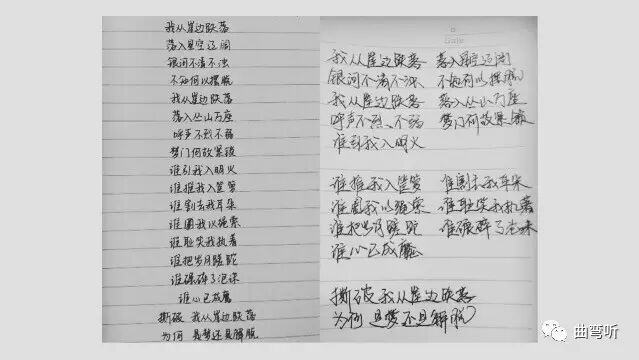 我从崖边跌落
落入星空辽阔
银河不清不浊
不知何以摆脱
我从崖边跌落
落入丛山万座
呼声不烈不弱
梦门何故紧锁
谁引我入明火
谁推我入筐箩
谁割去我耳朵
谁圈我以绳索
谁耻笑我执着
谁把岁月蹉跎
谁碾碎了泡沫
谁心已成魔
撕破 我从崖边跌落
为何 是梦还是解脱
Date
我从崖边跌落 落入星空辽阔
银河不清不浊 不知何以摆脱
我从崖边跌落 落入丛山万座
呼声不烈不弱 梦门何故紧锁
谁引我入明火
谁推我入筐箩 谁割去我耳朵
谁圈我以绳索 谁耻笑我执着
谁把岁月蹉跎 谁碾碎了泡沫
谁心已成魔
撕破 我从崖边跌落
为何 是梦还是解脱
曲弯听